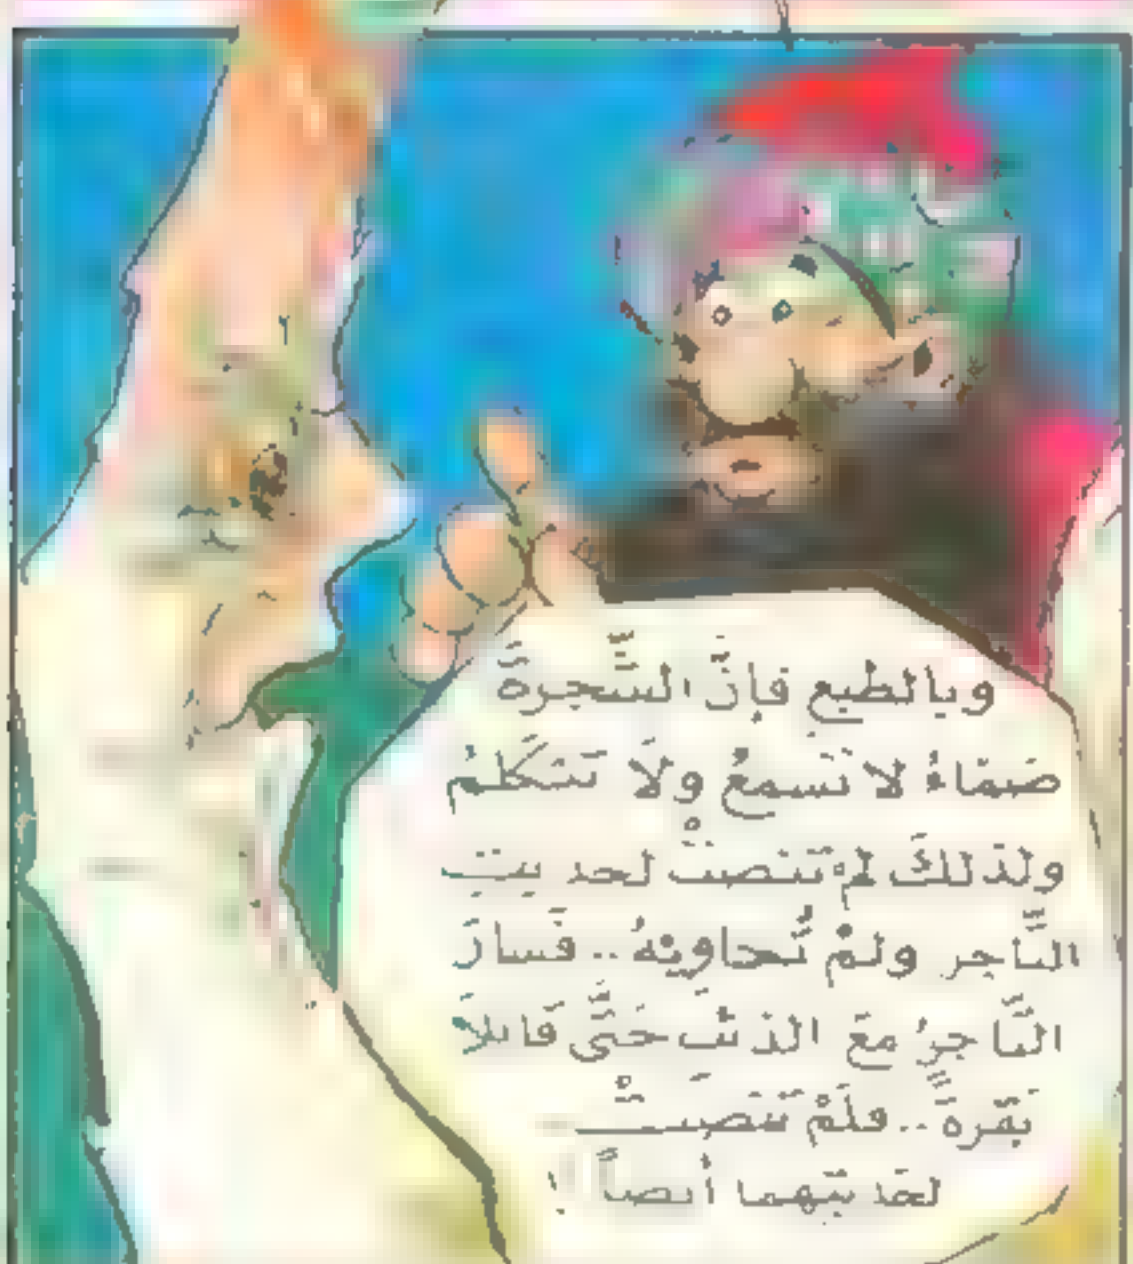 وبالطبعِ فإنَّ الشَّجرةَ
صَمَّاءُ لا تَسمعُ ولَا تَتَكَلَّمُ
ولذلكَ لم تَنصتْ لحديثِ
التَّاجرِ ولمْ تُحاوِرْهُ .. فَسارَ
التَّاجرُ معَ الذئبِ حَتَّى قَابلاَ
بَقَرةً .. فلَمْ تَنصِتْ
لحَديثِهِما أيضاً !